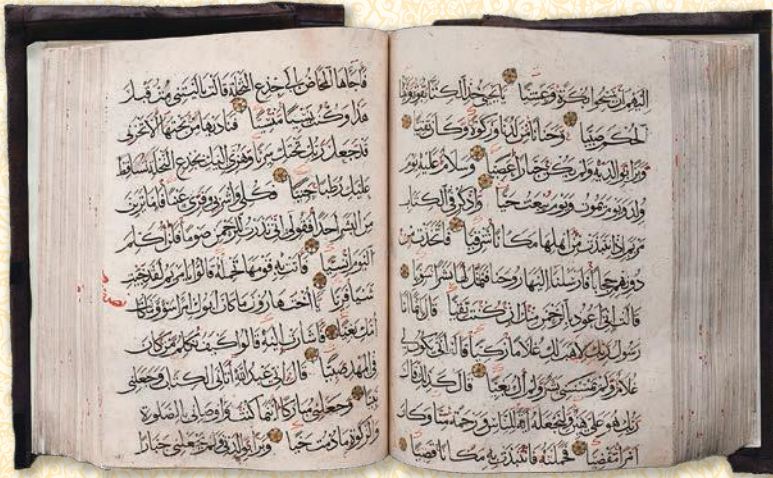 اليهم أن سبحوا بكرة وعشيا يا يحيى خذ الكتاب بقوة وآتيناه
الحكم صبيا وحنانا من لدنا وزكوة وكان تقيا
وبرا بوالديه ولم يكن جبارا عصيا وسلام عليه يوم
ولد ويوم يموت ويوم يبعث حيا واذكر في الكتاب
مريم إذ انتبذت من أهلها مكانا شرقيا فاتخذت من
دونهم حجابا فأرسلنا إليها روحنا فتمثل لها بشرا سويا
قالت إني أعوذ بالرحمن منك إن كنت تقيا قال إنما أنا
رسول ربك لأهب لك غلاما زكيا قالت أنى يكون لي
غلام ولم يمسسني بشر ولم أك بغيا قال كذلك قال
ربك هو علي هين ولنجعله آية للناس ورحمة منا وكان
أمرا مقضيا فحملته فانتبذت به مكانا قصيا
فأجاءها المخاض إلى جذع النخلة قالت يا ليتني مت قبل
هذا وكنت نسيا منسيا فناداها من تحتها ألا تحزني
قد جعل ربك تحتك سريا وهزي إليك بجذع النخلة تساقط
عليك رطبا جنيا فكلي واشربي وقري عينا فإما ترين
من البشر أحدا فقولي إني نذرت للرحمن صوما فلن أكلم
اليوم إنسيا فأتت به قومها تحمله قالوا يا مريم لقد جئت
شيئا فريا يا أخت هارون ما كان أبوك امرأ سوء وما كانت
أمك بغيا فأشارت إليه قالوا كيف نكلم من كان
في المهد صبيا قال إني عبد الله آتاني الكتاب وجعلني
نبيا وجعلني مباركا أينما كنت وأوصاني بالصلوة
والزكوة ما دمت حيا وبرا بوالدتي ولم يجعلني جبارا